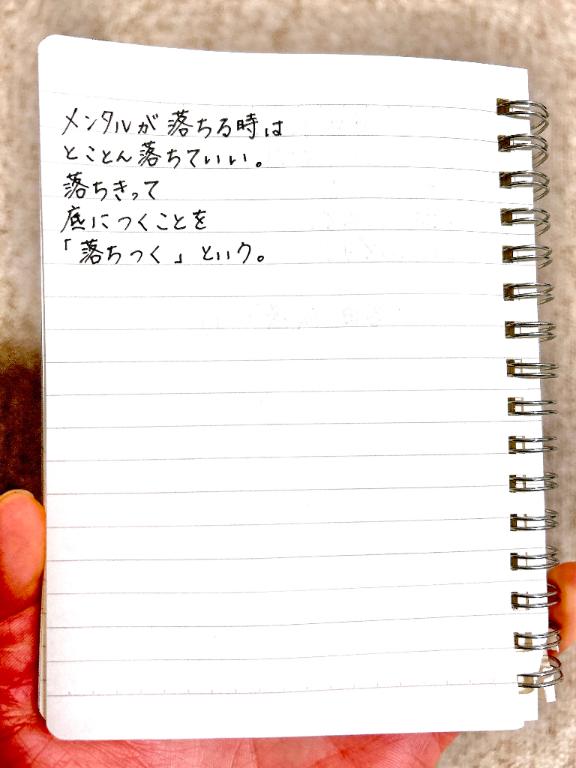 メンタルが落ちる時は
とことん落ちていい。
落ちきって
底につくことを
「落ちつく」という。